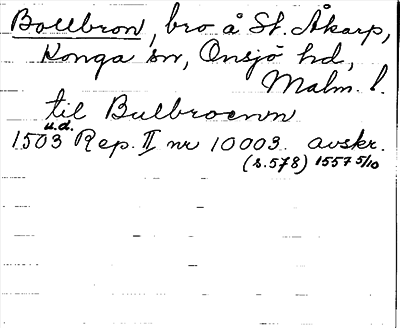 Bollbron, bro å St. Åkarp,
Konga sn, Onsjö hd,
Malm. l.
til Bulbroenn
u.d.
1503 Rep. II nr 10003. avskr.
(s.578) 1557 5/10